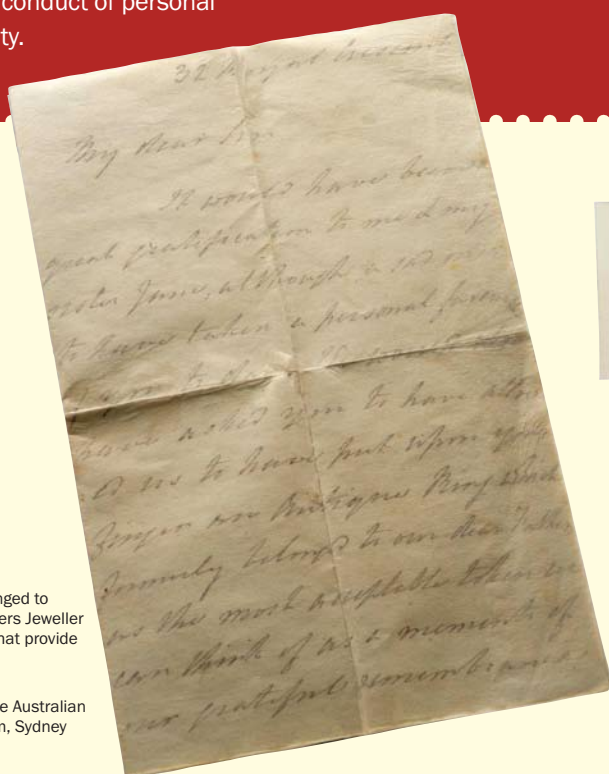 conduct of personal
ty.
32 Royal Crescent
My dear Sir
It would have been
great gratification to me & my
sister Jane, although a sad one
to have taken a personal farewell
have asked you to have allow
ed us to have put upon your
finger an Antique Ring which
formerly belonged to our dear Father
as the most acceptable token we
can think of as a memento of
our grateful remembrance
nged to
ers Jeweller
hat provide
e Australian
n, Sydney